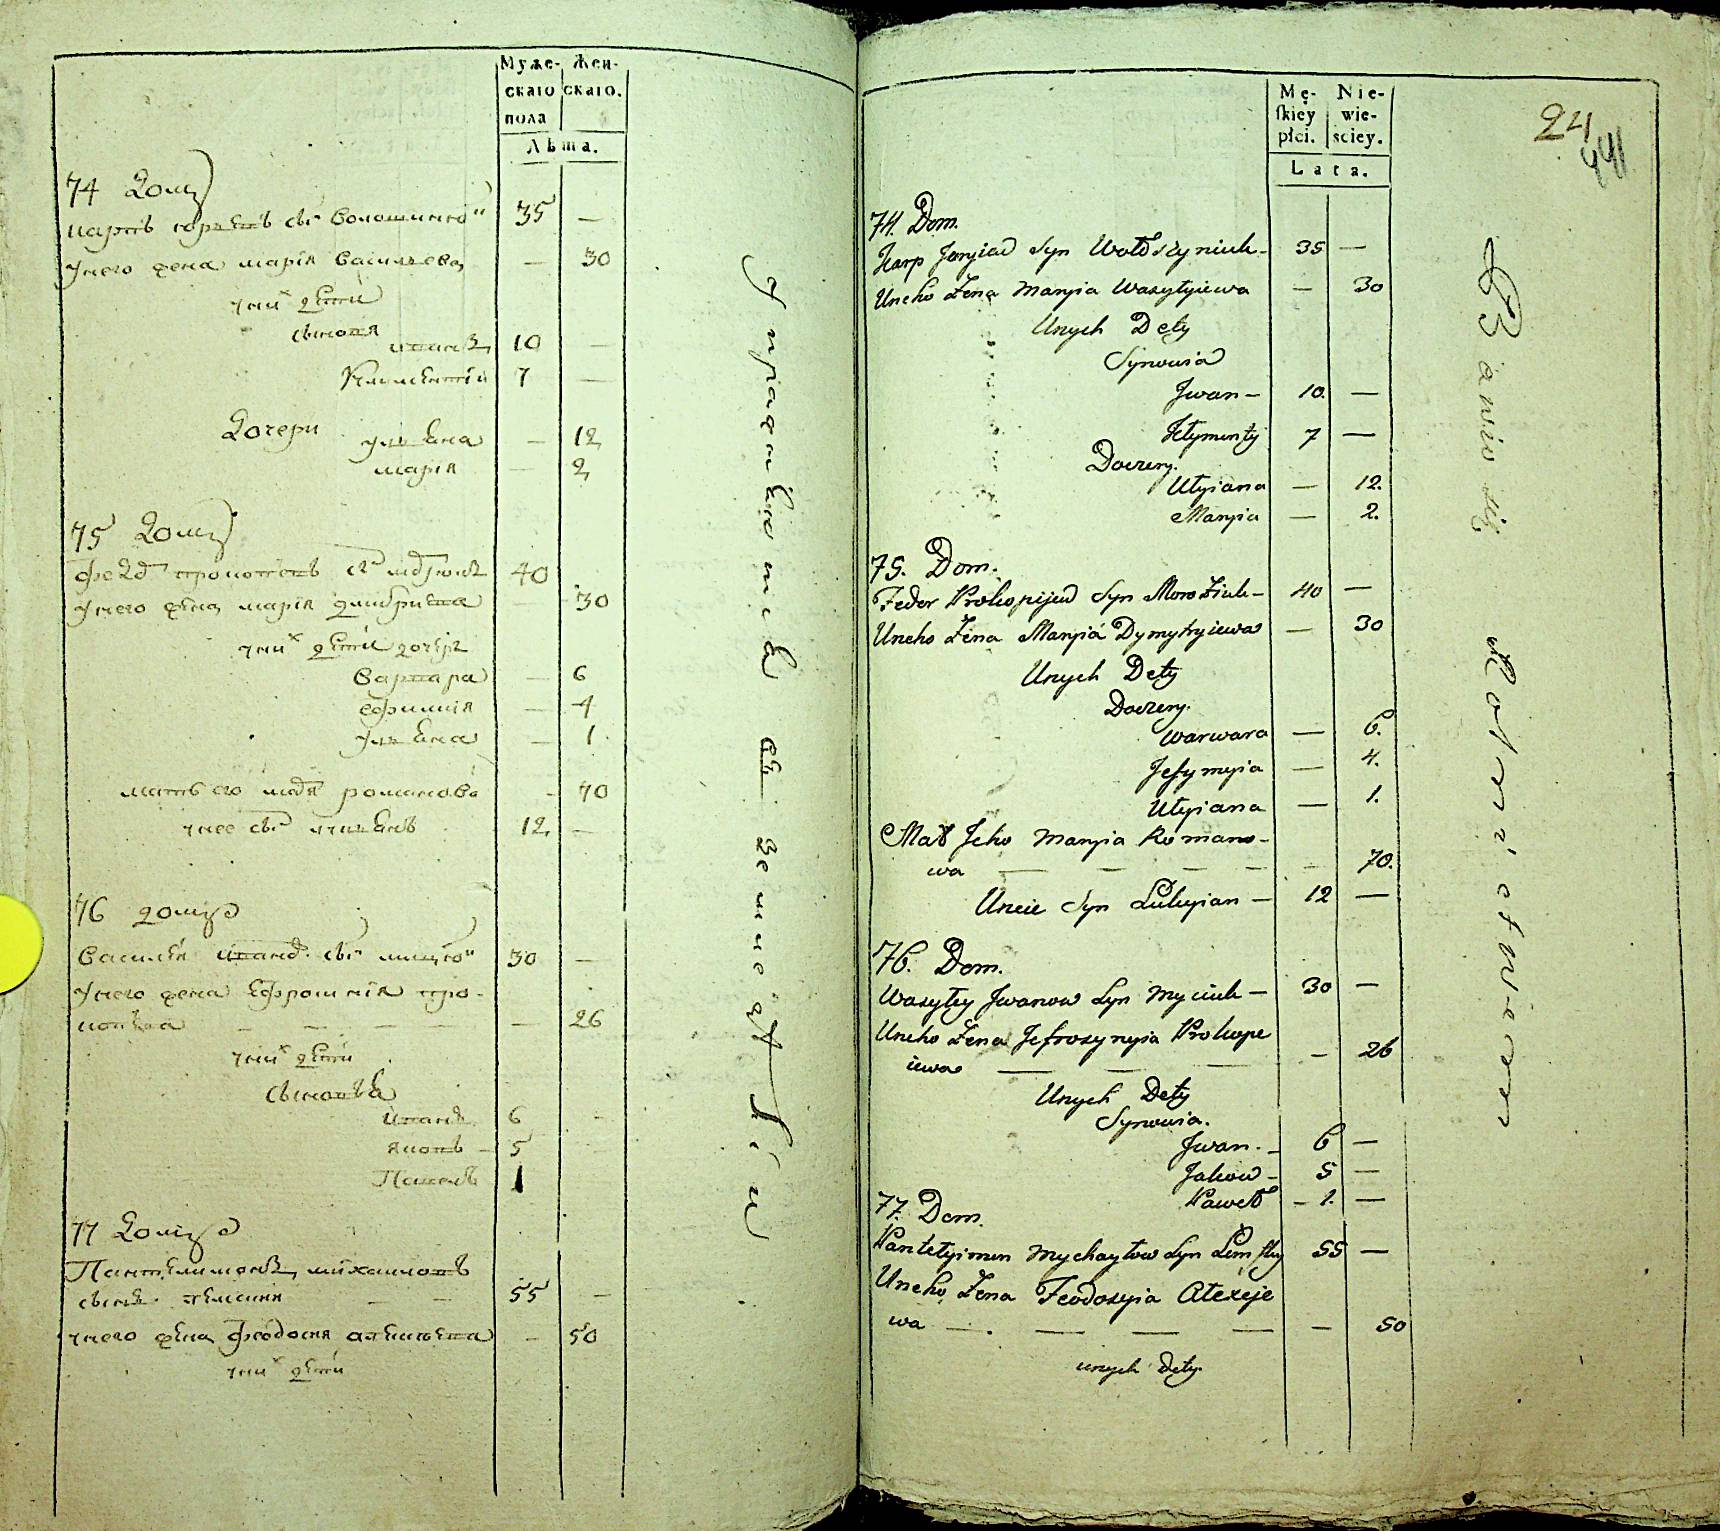 Муже-
скаго
пола
Жен-
скаго.
Лѣта.
74 Дому
Карпъ Юрьевъ сынъ Волошинюкъ 35 —
У него жена Марія Васильева — 30
У них дѣти
Сыновя
Иванъ 10 —
Климентій 7 —
Дочери Ульяна — 12
Марія — 2
75 Дому
Федоръ Прокопьевъ сынъ 40
У него жена Марія Дмитриева — 30
У них дѣти дочери
Варвара — 6
Ефимия — 4
Ульяна — 1
Мать его Романова — 70
У нее сынъ 12 —
76 Дому
Василий Ивановъ сынъ Мицюкъ 30 —
У него жена Ефросинія Про-
копьева — — — — — 26
У них дѣти
Сыновья
Иванъ 6 —
Яковъ — 5
Павелъ 1
77 Дому
Пантелимонъ Михаиловъ
сынъ — — 55 —
У него жена Феодосия Алексеева — 50
У них дѣти
Упражняются въ земледѣлїи
Mę-
skiey
płci.
Nie-
wie-
sciey.
Lata.
24
441
74. Dom.
Karp Juryiew Syn Wołoszyniuk — 35 —
Uneho Żena Maryia Wasyłyiewa — 30
Unych Dety
Synowia
Jwan — 10. —
Kłymenty 7 —
Doczery.
Ułyiana — 12.
Maryia — 2.
75. Dom.
Fedor Prokopijew Syn Moroziuk — 40 —
Uneho Żena Maryia Dymytryiewa — 30
Unych Dety
Doczery.
Warwara — 6.
Jefymyia — 4.
Ułyiana — 1.
Mat Jeho Maryia Romano-
wa — — — — 70.
Uneie Syn Łukyian — 12 —
76. Dom.
Wasyłey Jwanow Syn Myciuk — 30 —
Uneho Żena Jefrosynyia Prokope
iewa — — — — 26
Unych Dety
Synowia.
Jwan. — 6 —
Jakow — 5 —
Paweł — 1. —
77. Dom.
Pantełyimon Mychayłow Syn 55 —
Uneho Żena Feodosyia Ałexeje
wa — — — — — 50
unych Dety.
Bawio się Rolnictwem